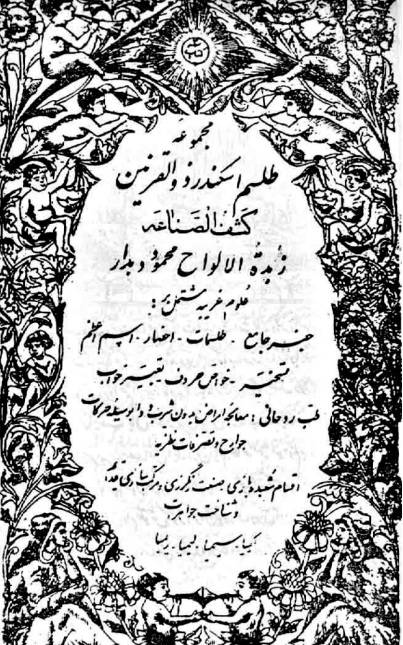 مجموعه
طلسم اسکندر ذوالقرنین
کشف الصناعه
زبدة الالواح محمود دهدار
علوم غریبه مشتمل بر:
جفر جامع - طلسمات - احضار - اسم اعظم
تسخیر - خواص حروف - تعبیر خواب
طب روحانی: معالجه امراض بدون شربت و دوا بوسیله حرکات
جوارح و تصرفات نظریه
اقسام شعبده بازی صنعت زرگری و مرکب سازی قدیمه
و ساخت جواهرات
کیمیا - سیمیا - لیمیا - ریمیا